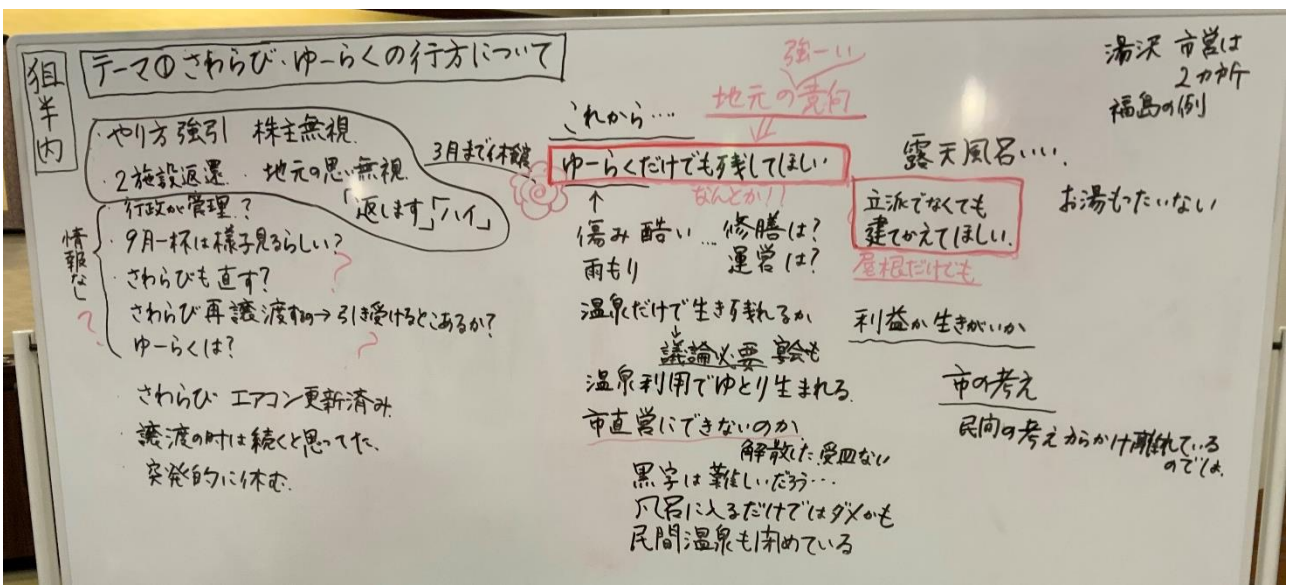 狙半内
テーマ① さわらび・ゆーらくの行方について
・やり方強引 株主無視
・2施設返還 ・地元の思い無視
「返します」「ハイ」
情報なし?
・行政が管理?
・9月一杯は様子見るらしい?
・さわらびも直す?
さわらび再譲渡するの→引き受けるとこあるか?
ゆーらくは?
?
?
さわらび エアコン更新済み
・譲渡の時は続くと思ってた
突発的に休む
これから…
強ーい
地元の意向
3月まで休館
ゆーらくだけでも残してほしい
なんとか!!
傷み酷い…修膳は?
雨もり 運営は?
温泉だけで生き残れるか
議論必要 宴会も
温泉利用でゆとり生まれる
市直営にできないのか
解散した 受皿ない
黒字は難しいだろう…
風呂に入るだけではダメかも
民間温泉も閉めている
露天風呂いい
立派でなくても
建てかえてほしい
屋根だけでも
利益か生きがいか
湯沢 市営は
2カ所
福島の例
お湯もったいない
市の考え
民向の考えからかけ離れている
のでは